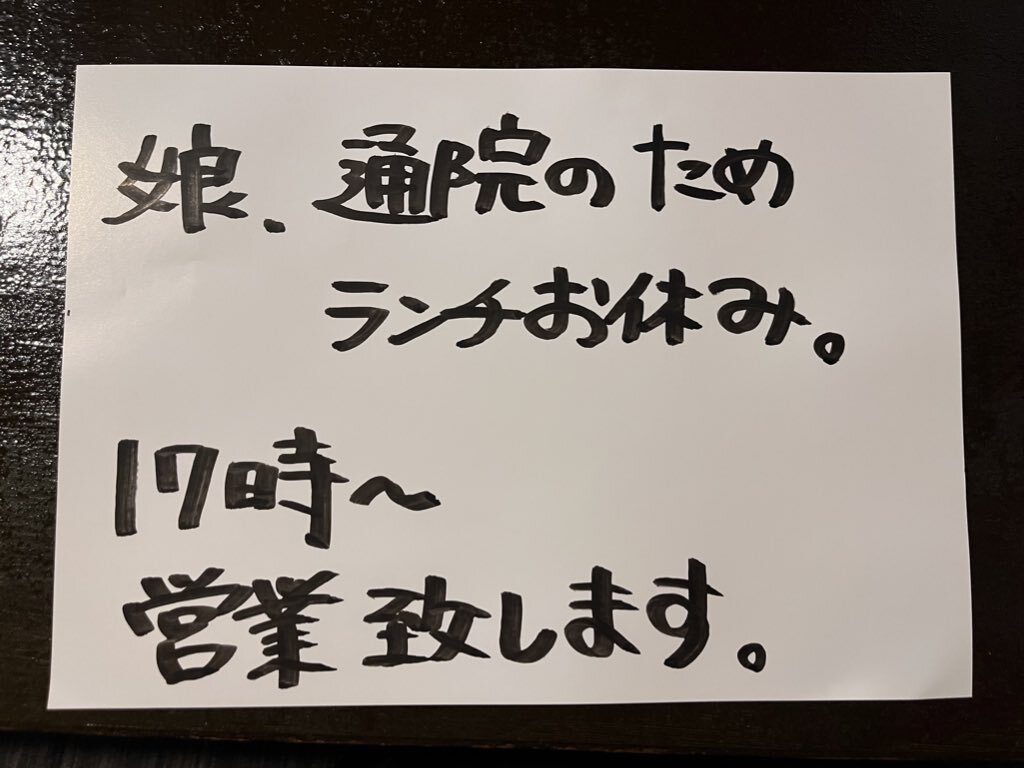 娘、通院のため
ランチお休み。
17時～
営業致します。